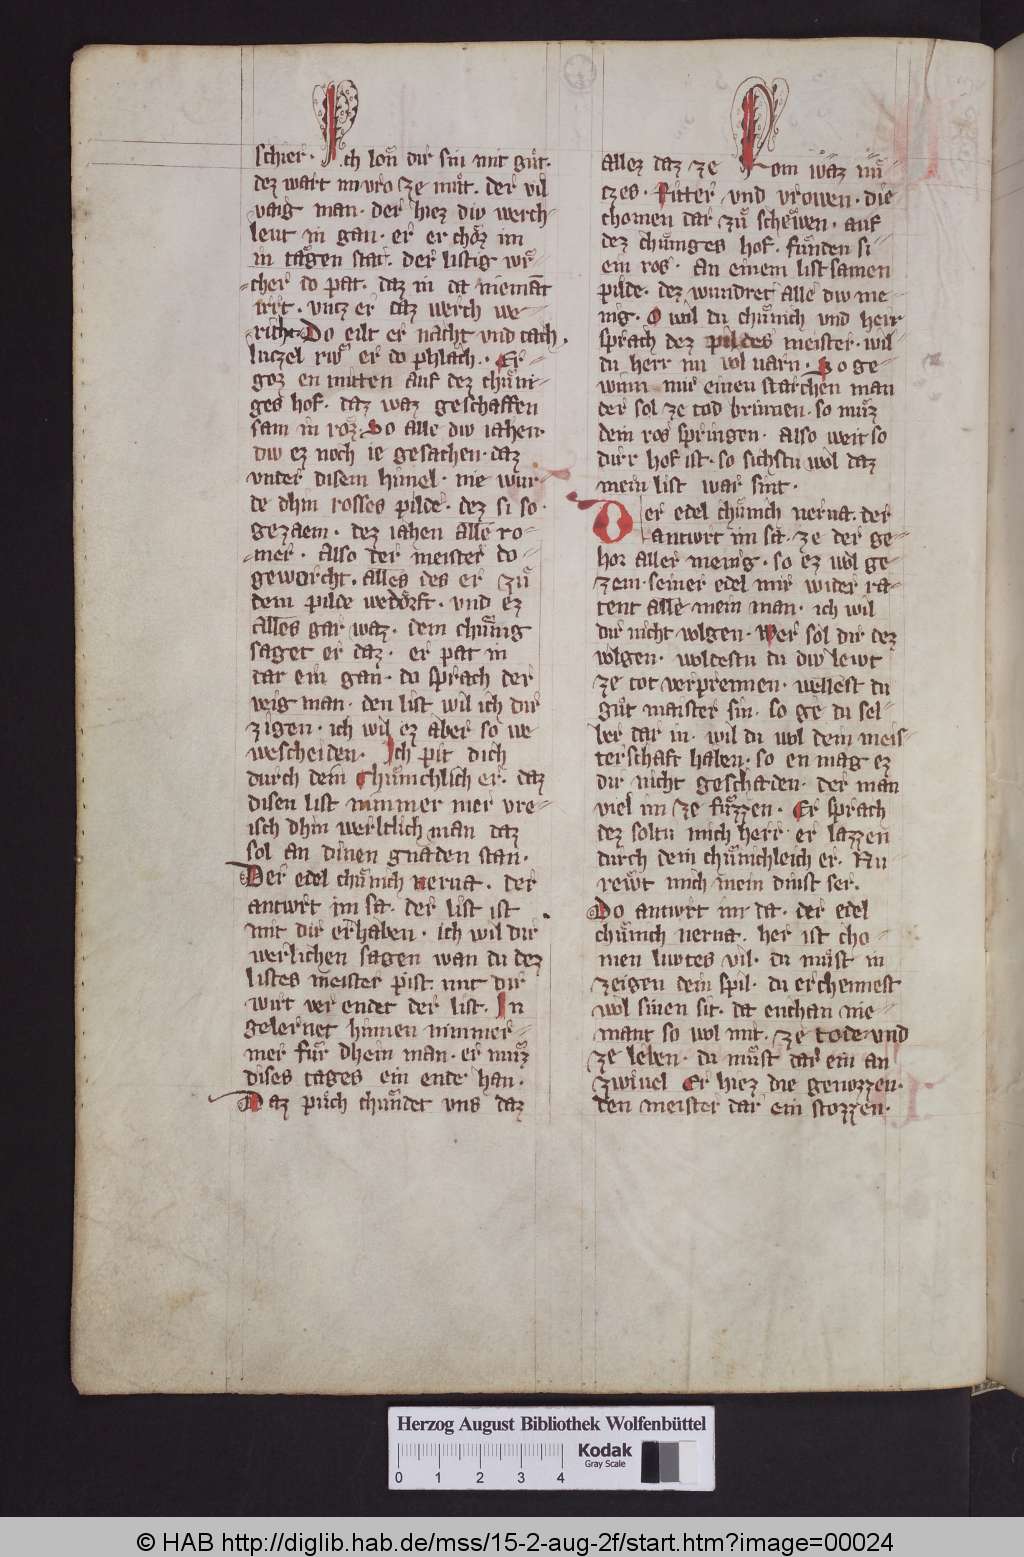 schier. Ich lon dir sin mit guͦt.
dez wart im vro ze muͦt. der vil
vaig man. der hiez div werch-
leut in gan. er er choͤz im
in taͤgen stat. der listig wuͤr-
cher do pat. daz in da niemāt
irrt. vncz er daz werch we-
richt. Do eilt er nacht vnd tach.
luczel rwͤ er do phlach. Er
goz en mitten auf dez chuͤni-
ges hof. daz waz geschaffen
sam in roz. So alle div iahen.
div ez noch ie gesachen. daz
vnder disem himel. nie wur-
de dhin rosses pilde. dez si so.
gezaem. dez iahen alle ro-
mer. Also der meister do
geworcht. alles des er zuͦ
dem pilde wedorft. vnd ez
alles gar waz. dem chuͤnig
saget er daz. er pat in
dar ein gan. do sprach der
veig man. den list wil ich dir
zigen. ich wil ez aber so we
wescheiden. Ich pit dich
durch dein chuͤnichlich er. daz
disen list nimmer mer vre-
isch dhin werltlich man daz
sol an dinen gnaden stan.
Der edel chuͤnich nerua. der
antwrt im sa. der list ist
mit dir erhaben. ich wil dir
werlichen sagen wan du dez
listes meister pist. mit dir
wirt ver endet der list. In
gelernet hinnen nimmer-
mer fuͤr dhein man. er muͤz
dises tages ein ende han.
Daz puͦch chuͤndet vns daz
allez daz ze Rom waz nuͤ-
czes. Ritter vnd vrowen. die
chomen dar zuͦ scheẅen. auf
dez chuͤniges hof. fuͤnden si
ein ros. an einem listsamen
pilde. dez wundret alle div me-
nig. O wol du chuͤnich vnd herr
sprach dez pildes meister. wil
du herr nu wol varn. So ge-
winn mir einen starchen man
der sol ze tod brinnen. so muͦz
dein ros springen. also weit so
durr hof ist. so sichstu wol daz
mein list war sint.
Der edel chuͤnich nerua. der
antwrt im sa. ze der ge-
hor aller menig. so ez wol ge-
zem. seiner edel mir wider ra-
tent alle mein man. ich wil
dir nicht volgen. Wer sol dir dez
volgen. woldestu du div lewt
ze tot verprennen. wellest du
guͦt maister sin. so ge du sel-
ber dar in. wil du wol dein meis-
terschaft haben. so en mag ez
dir nicht geschaden. der man
viel im ze fuͤzzen. Er sprach
dez soltu mich herr er lazzen
durch dein chuͤnichleich er. Nu
reẅt mich mein dinst ser.
Do antwrt im da. der edel
chuͤnich nerua. her ist cho-
men luͤtes vil. du muͤst in
zeigen dein spil. du erchennest
wol sinen sit. da enchan nie-
mant so wol mit. ze tode vnd
ze leben. du muͤst dar ein an
zwiuel Er hiez die genozzen.
den meister dar ein stozzen.
Herzog August Bibliothek Wolfenbüttel
0 1 2 3 4
Kodak
Gray Scale
© HAB http://diglib.hab.de/mss/15-2-aug-2f/start.htm?image=00024